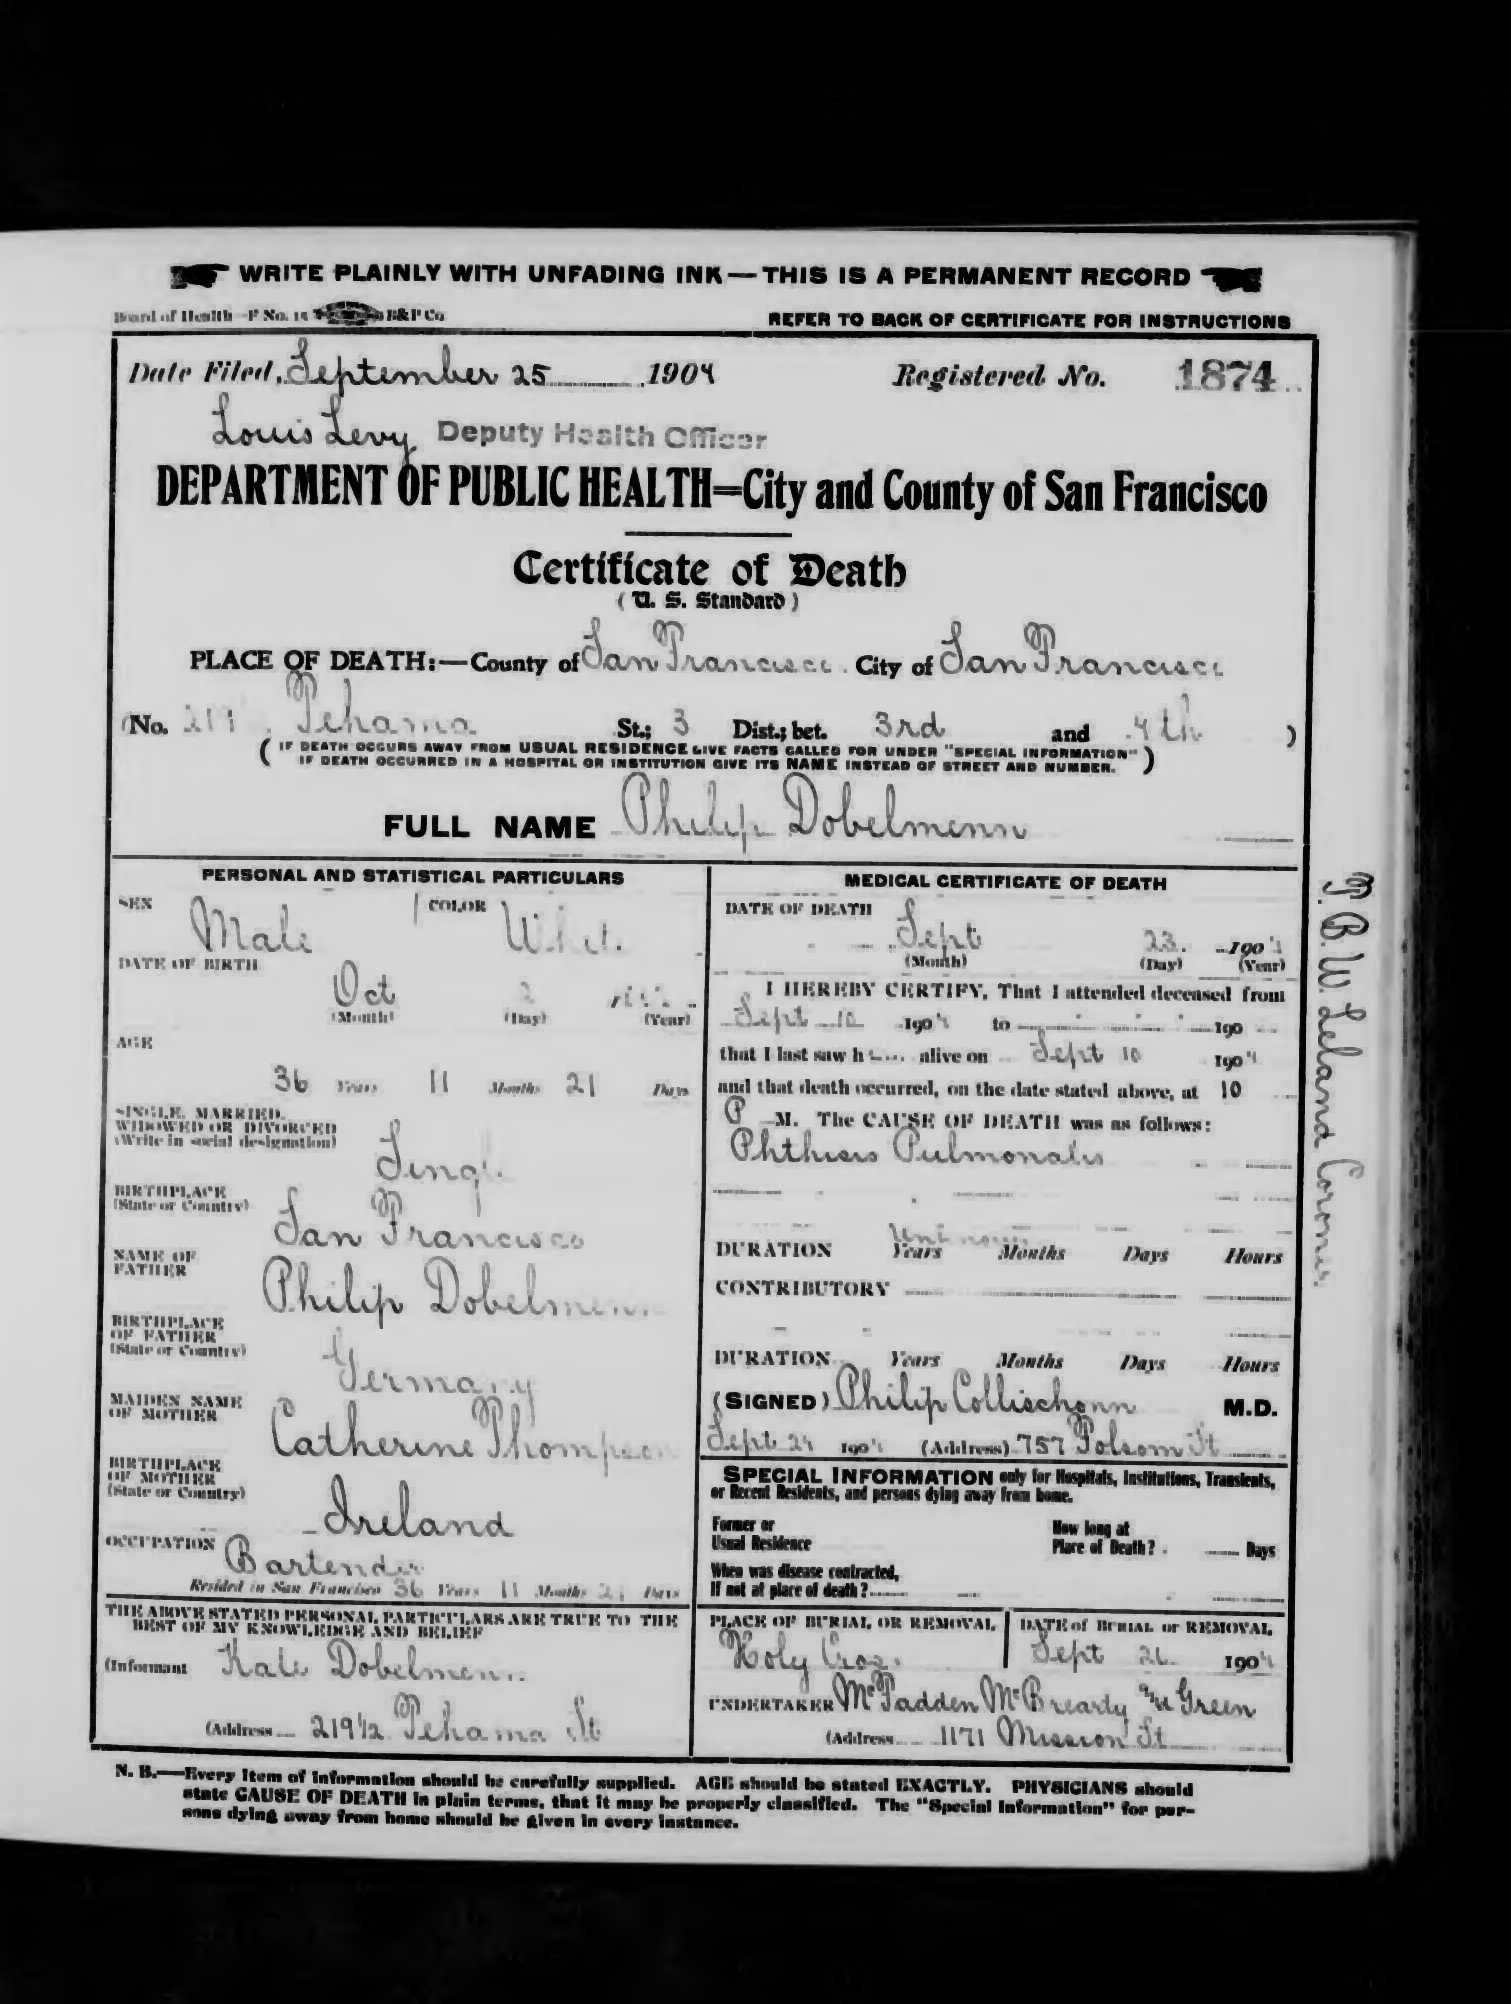 WRITE PLAINLY WITH UNFADING INK — THIS IS A PERMANENT RECORD
Board of Health—F No. B&P Co
REFER TO BACK OF CERTIFICATE FOR INSTRUCTIONS
Date Filed, September 25 1904 Registered No. 1874
Louis Levy Deputy Health Officer
DEPARTMENT OF PUBLIC HEALTH=City and County of San Francisco
Certificate of Death
(U. S. Standard)
PLACE OF DEATH:—County of San Francisco City of San Francisco
(No. Tehama St.; 3 Dist.; bet. 3rd and 4th )
( IF DEATH OCCURS AWAY FROM USUAL RESIDENCE GIVE FACTS CALLED FOR UNDER "SPECIAL INFORMATION" )
IF DEATH OCCURRED IN A HOSPITAL OR INSTITUTION GIVE ITS NAME INSTEAD OF STREET AND NUMBER.
FULL NAME Philip Dobelmenn
PERSONAL AND STATISTICAL PARTICULARS
SEX Male COLOR White
DATE OF BIRTH
Oct 2
(Month) (Day) (Year)
AGE
36 Years 11 Months 21 Days
SINGLE, MARRIED,
WIDOWED OR DIVORCED
(Write in social designation)
Single
BIRTHPLACE
(State or Country)
San Francisco
NAME OF
FATHER
Philip Dobelmenn
BIRTHPLACE
OF FATHER
(State or Country)
Germany
MAIDEN NAME
OF MOTHER
Catherine Thompson
BIRTHPLACE
OF MOTHER
(State or Country)
Ireland
OCCUPATION Bartender
Resided in San Francisco 36 Years 11 Months 21 Days
THE ABOVE STATED PERSONAL PARTICULARS ARE TRUE TO THE
BEST OF MY KNOWLEDGE AND BELIEF
(Informant Kate Dobelmenn
(Address 219 1/2 Tehama St
MEDICAL CERTIFICATE OF DEATH
DATE OF DEATH
Sept 23 1904
(Month) (Day) (Year)
I HEREBY CERTIFY, That I attended deceased from
Sept 10 1904 to 190
that I last saw h alive on Sept 10 1904
and that death occurred, on the date stated above, at 10
P M. The CAUSE OF DEATH was as follows:
Phthisis Pulmonalis
Unknown
DURATION Years Months Days Hours
CONTRIBUTORY
DURATION Years Months Days Hours
(SIGNED) Philip Collischonn M.D.
Sept 24 1904 (Address) 757 Folsom St
SPECIAL INFORMATION only for Hospitals, Institutions, Transients,
or Recent Residents, and persons dying away from home.
Former or
Usual Residence
How long at
Place of Death? Days
When was disease contracted,
If not at place of death?
PLACE OF BURIAL OR REMOVAL
Holy Cross
DATE of BURIAL or REMOVAL
Sept 26 1904
UNDERTAKER McFadden McBrearty & Green
(Address 1171 Mission St
N. B.—Every item of information should be carefully supplied. AGE should be stated EXACTLY. PHYSICIANS should
state CAUSE OF DEATH in plain terms, that it may be properly classified. The "Special Information" for per-
sons dying away from home should be given in every instance.
T. B. W. Leland Coroner